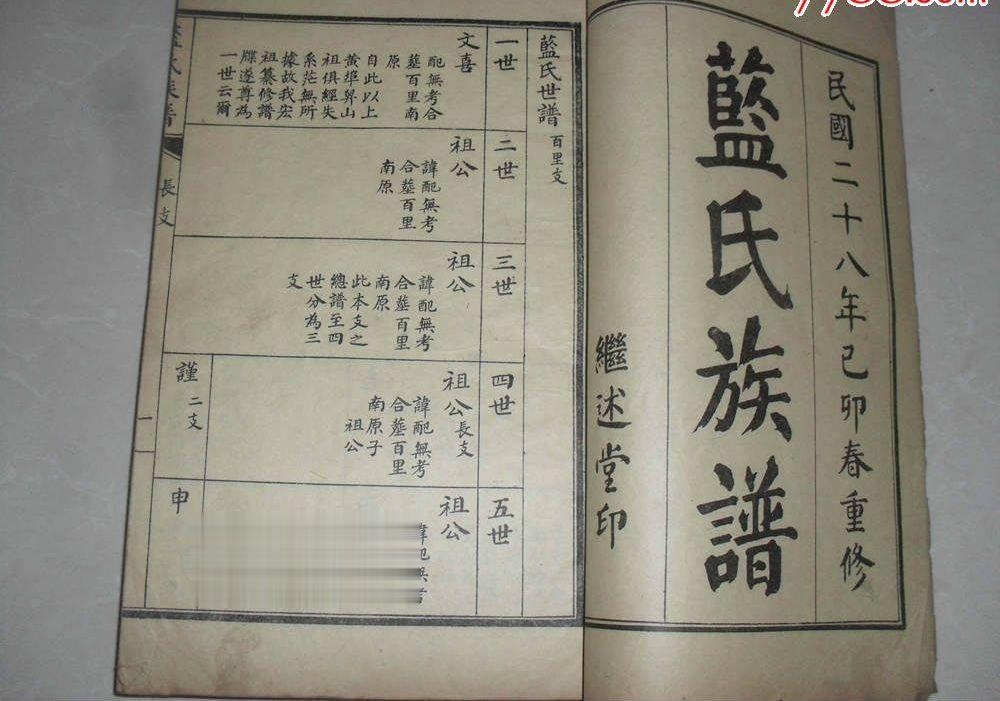 民國二十八年己卯春重修
藍氏族譜
繼述堂印
藍氏世譜 百里支
一世
文喜
配無考合
墓百里南
原
自此以上
黄埠舁山
祖俱經失
系茫無所
據故我宏
祖纂修譜
牒遂尊為
一世云爾
二世
祖公
諱配無考
合墓百里
南原
三世
祖公
諱配無考
合墓百里
南原
此本支之
總譜至四
世分為三
支
四世
祖公長支
諱配無考
合墓百里
南原子
祖公
五世
祖公
諱配無考
謹 二支
申
氏族譜
長支
一